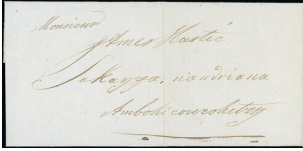 Monsieur
James Hastie
Sakayza. nandriana
Ambohicourohitry